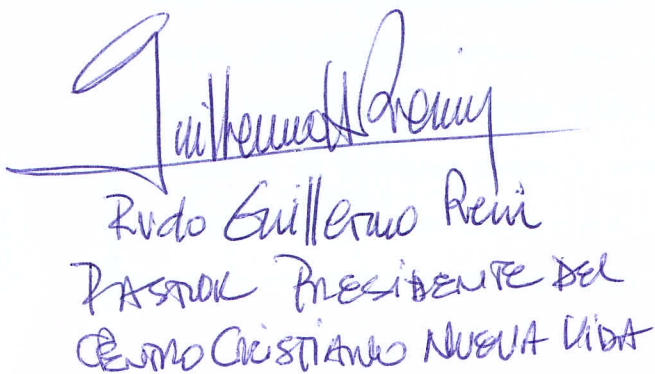 Guillermo Prein
Rvdo Guillermo Prein
PASTOR PRESIDENTE DEL
CENTRO CRISTIANO NUEVA VIDA